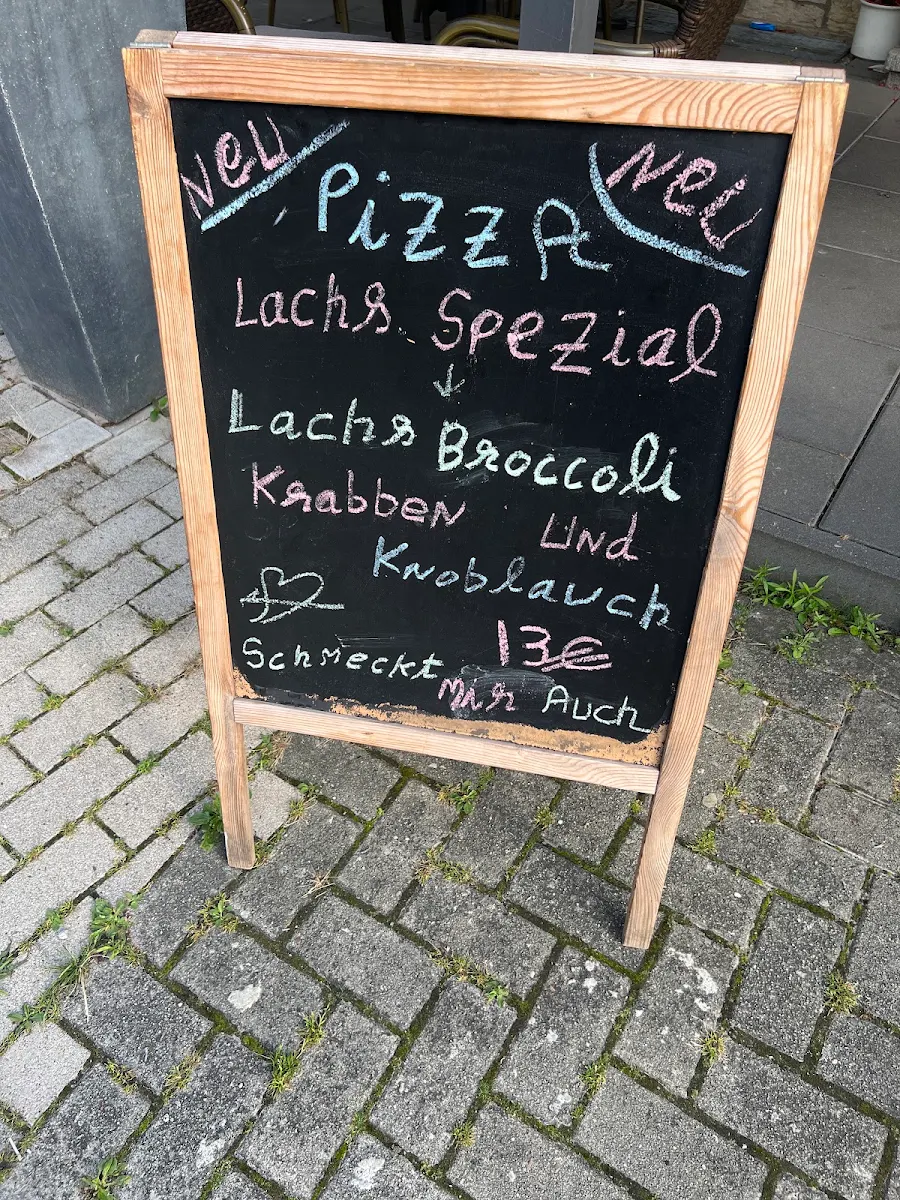 Neu
Neu
PiZZA
Lachs Spezial
Lachs Broccoli
Krabben und
Knoblauch
13€
Schmeckt mir Auch